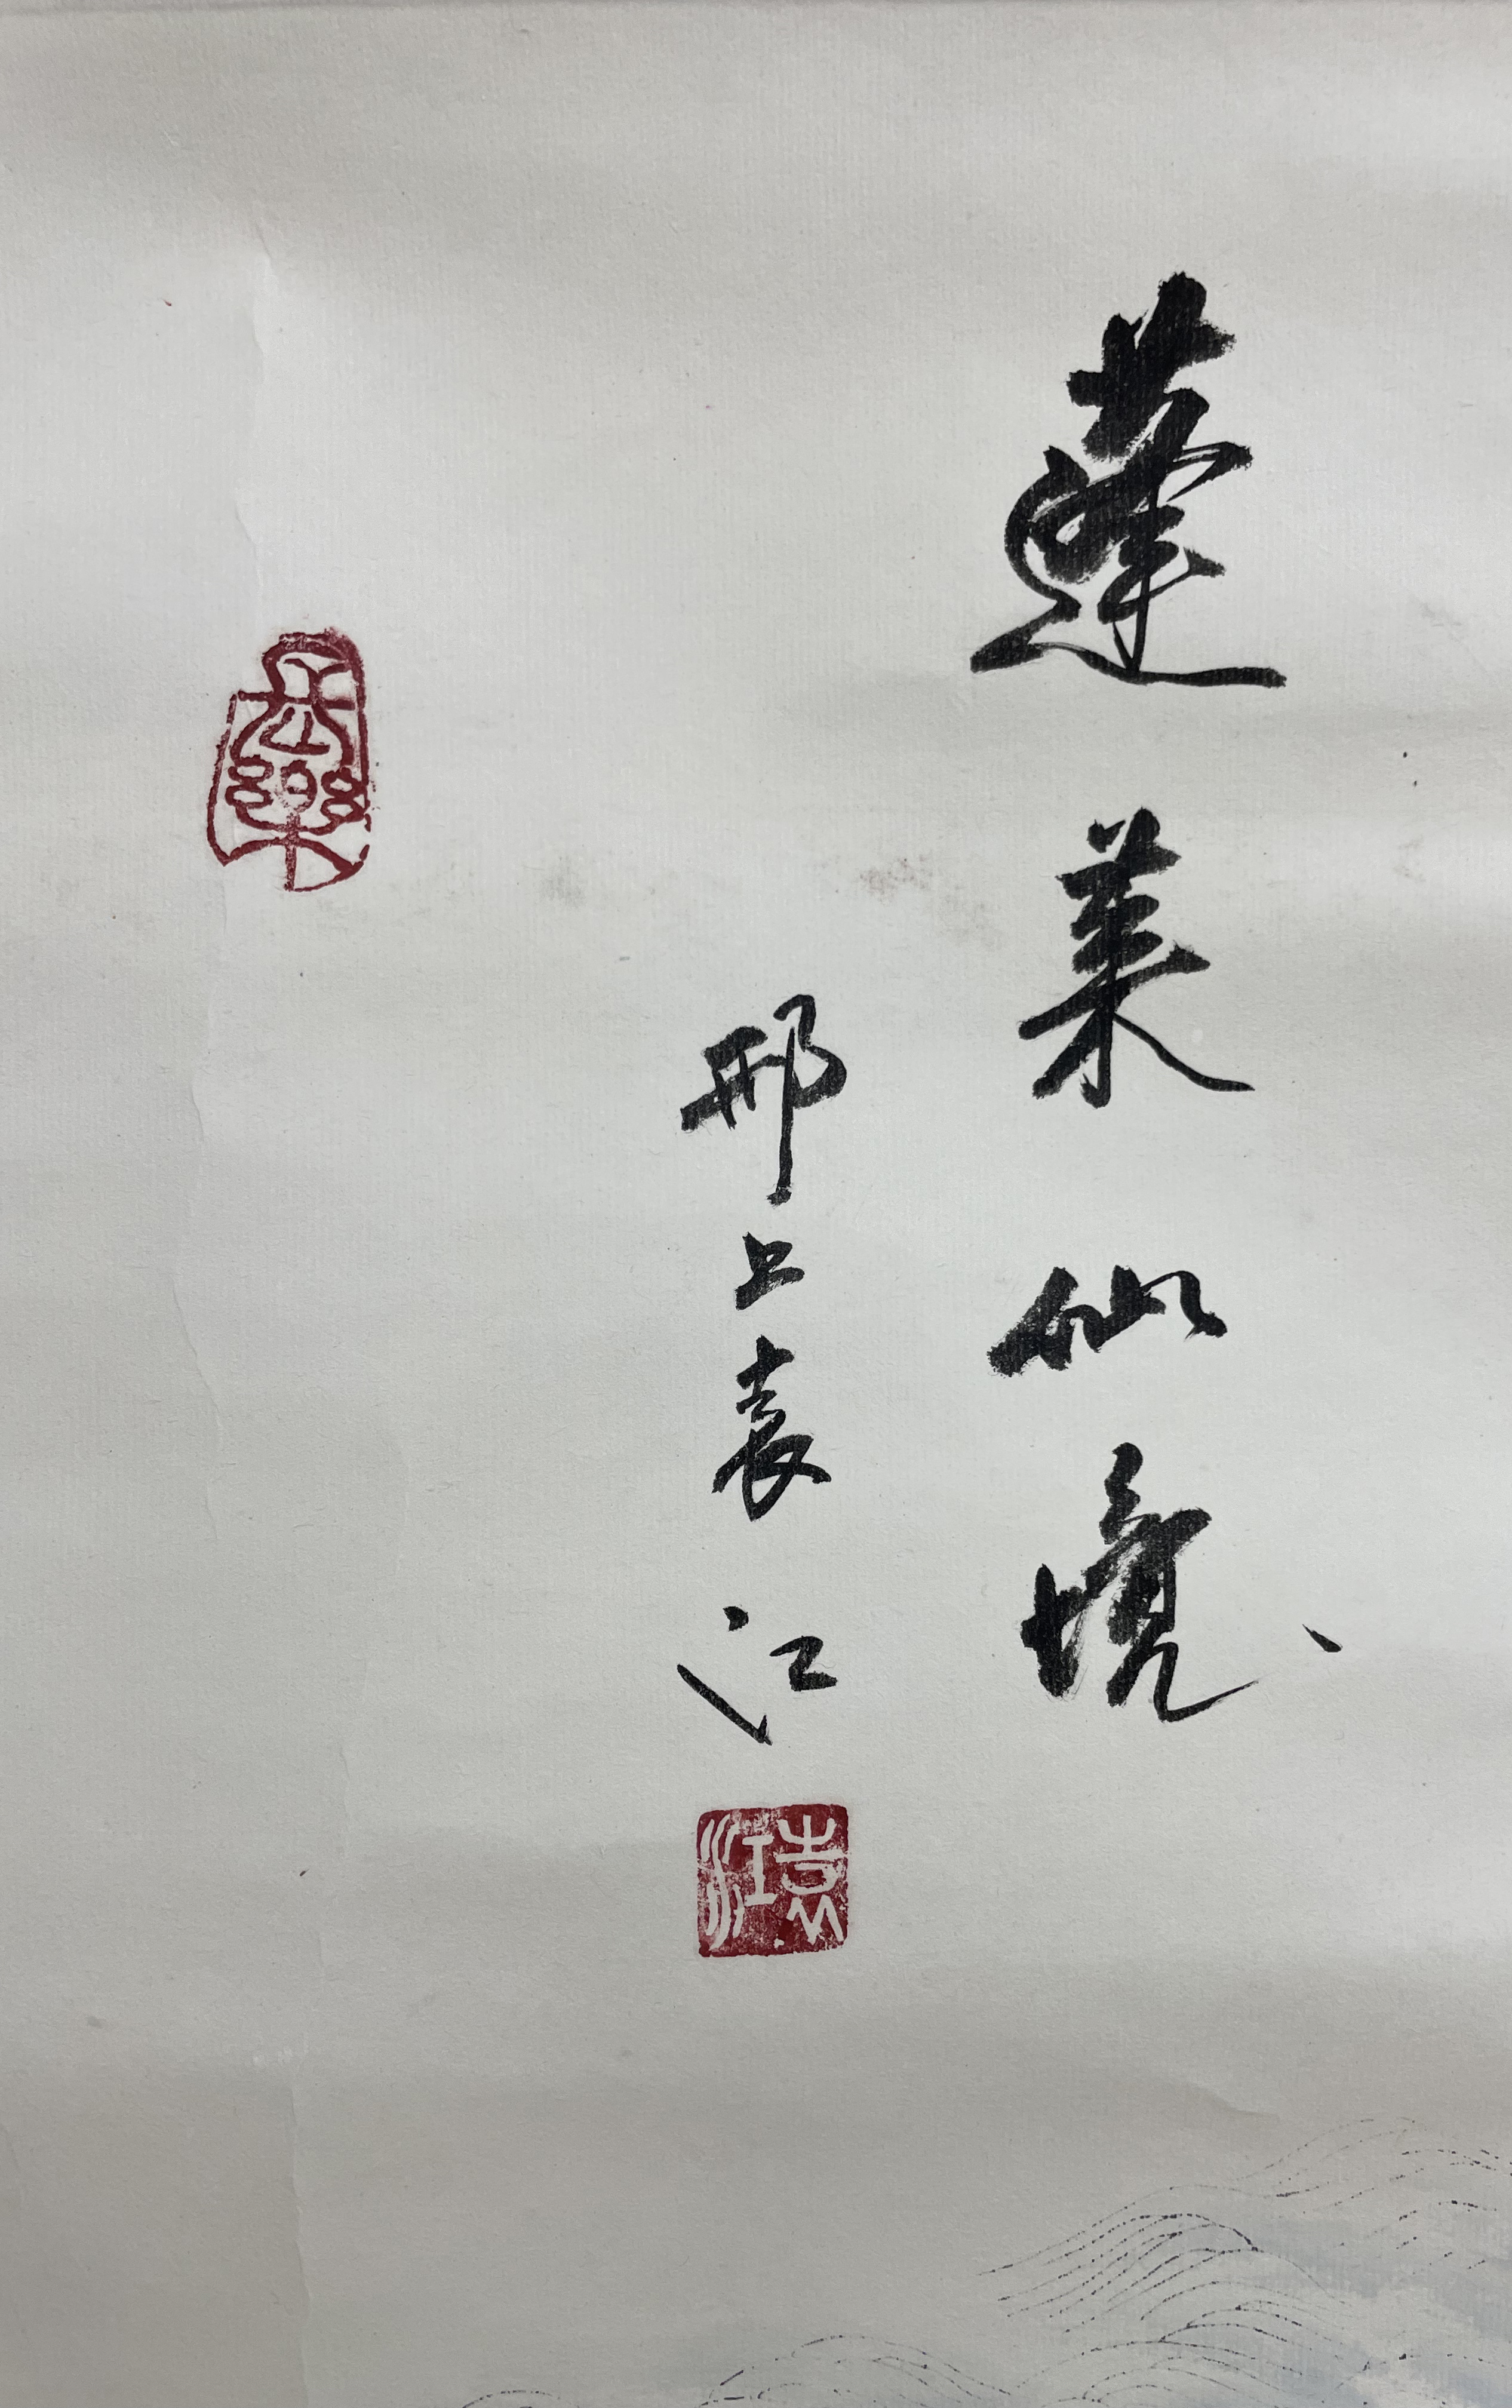 蓬莱仙境
邗上袁江
袁江